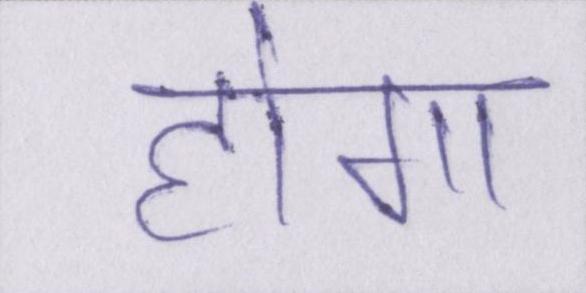 होगा